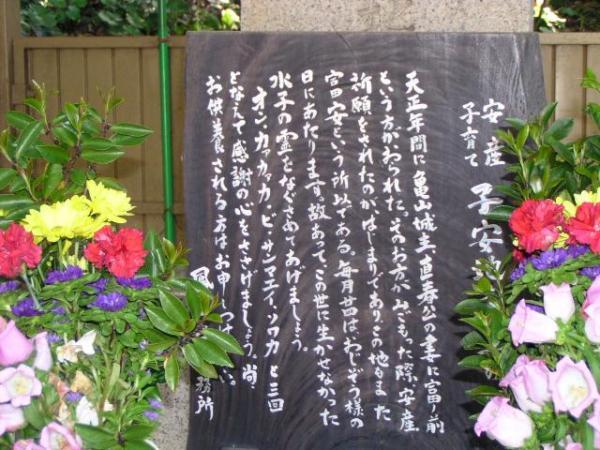 安産
子育て
子安
天正年間に亀山城主、直春公の妻に富ノ前
という方がおられた。そのお方がみごもった際、安産
祈願をされたのが、はじまりであり、この地もまた
富田子安という所以である。毎月廿四は、おじぞう様の
日にあたります。故あって、この世に生かせなかった
水子の霊をなぐさめてあげましょう。
オン.カカカ.ビ.サンマエイ.ソワカ と三回
となえて感謝の心をささげましょう。尚
お供養される方はお申し
務所